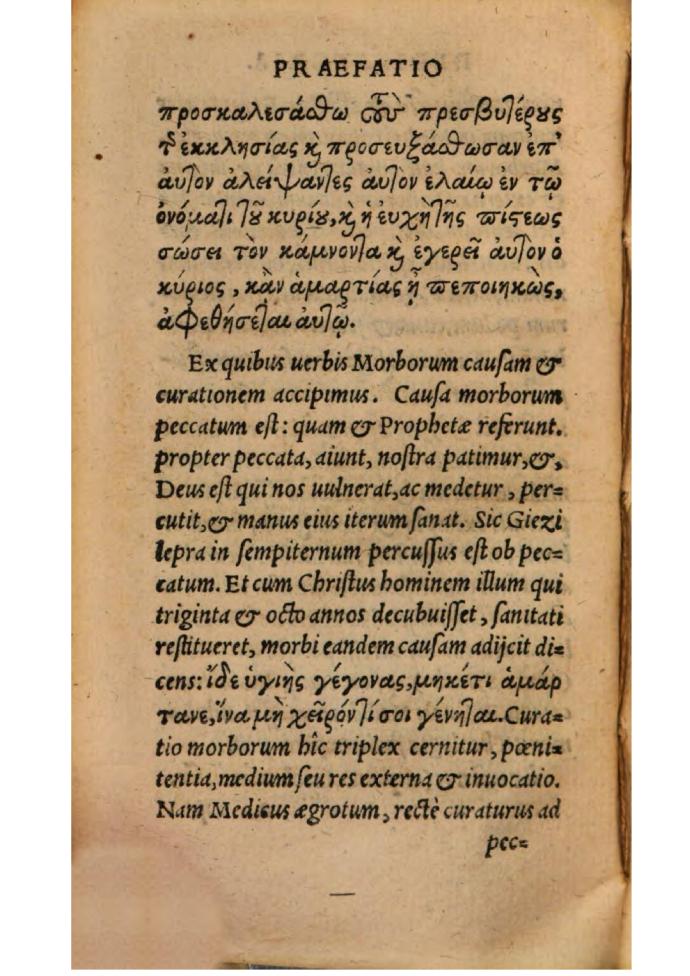 PRAEFATIO
προσκαλεσάσθω τοὺς πρεσβυτέρους
τῆς ἐκκλησίας καὶ προσευξάσθωσαν ἐπ'
ἀυτὸν ἀλείψαντες ἀυτὸν ἐλαίῳ ἐν τῷ
ὀνόματι τοῦ κυρίου, καὶ ἡ ἐυχὴ τῆς πίστεως
σώσει τὸν κάμνοντα καὶ ἐγερεῖ ἀυτὸν ὁ
κύριος, κἂν ἁμαρτίας ᾖ πεποιηκὼς,
ἀφεθήσεται ἀυτῷ.
Ex quibus uerbis Morborum cauſam &
curationem accipimus. Cauſa morborum
peccatum eſt: quam & Prophetæ referunt.
propter peccata, aiunt, noſtra patimur, &,
Deus eſt qui nos uulnerat, ac medetur, per=
cutit, & manus eius iterum ſanat. Sic Giezi
lepra in ſempiternum percuſſus eſt ob pec=
catum. Et cum Chriſtus hominem illum qui
triginta & octo annos decubuiſſet, ſanitati
reſtitueret, morbi eandem cauſam adijcit di=
cens: ἴδε ὑγιὴς γέγονας, μηκέτι ἁμάρ
τανε, ἵνα μὴ χεῖρόν τί σοι γένηται. Cura=
tio morborum hîc triplex cernitur, pœni=
tentia, medium ſeu res externa & inuocatio.
Nam Medicus ægrotum, rectè curaturus ad
pec=